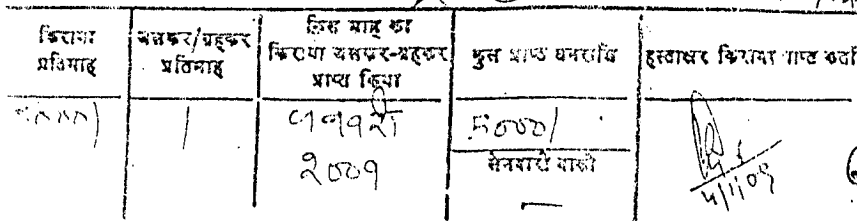 किराया
प्रतिमाह
जलकर/गृहकर
प्रतिमाह
किस माह का
किराया जलकर-गृहकर
प्राप्त किया
कुल प्राप्त धनराशि
हस्ताक्षर किराया प्राप्त कर्ता
जनवरी
2009
5000/
लेनदारी बाकी